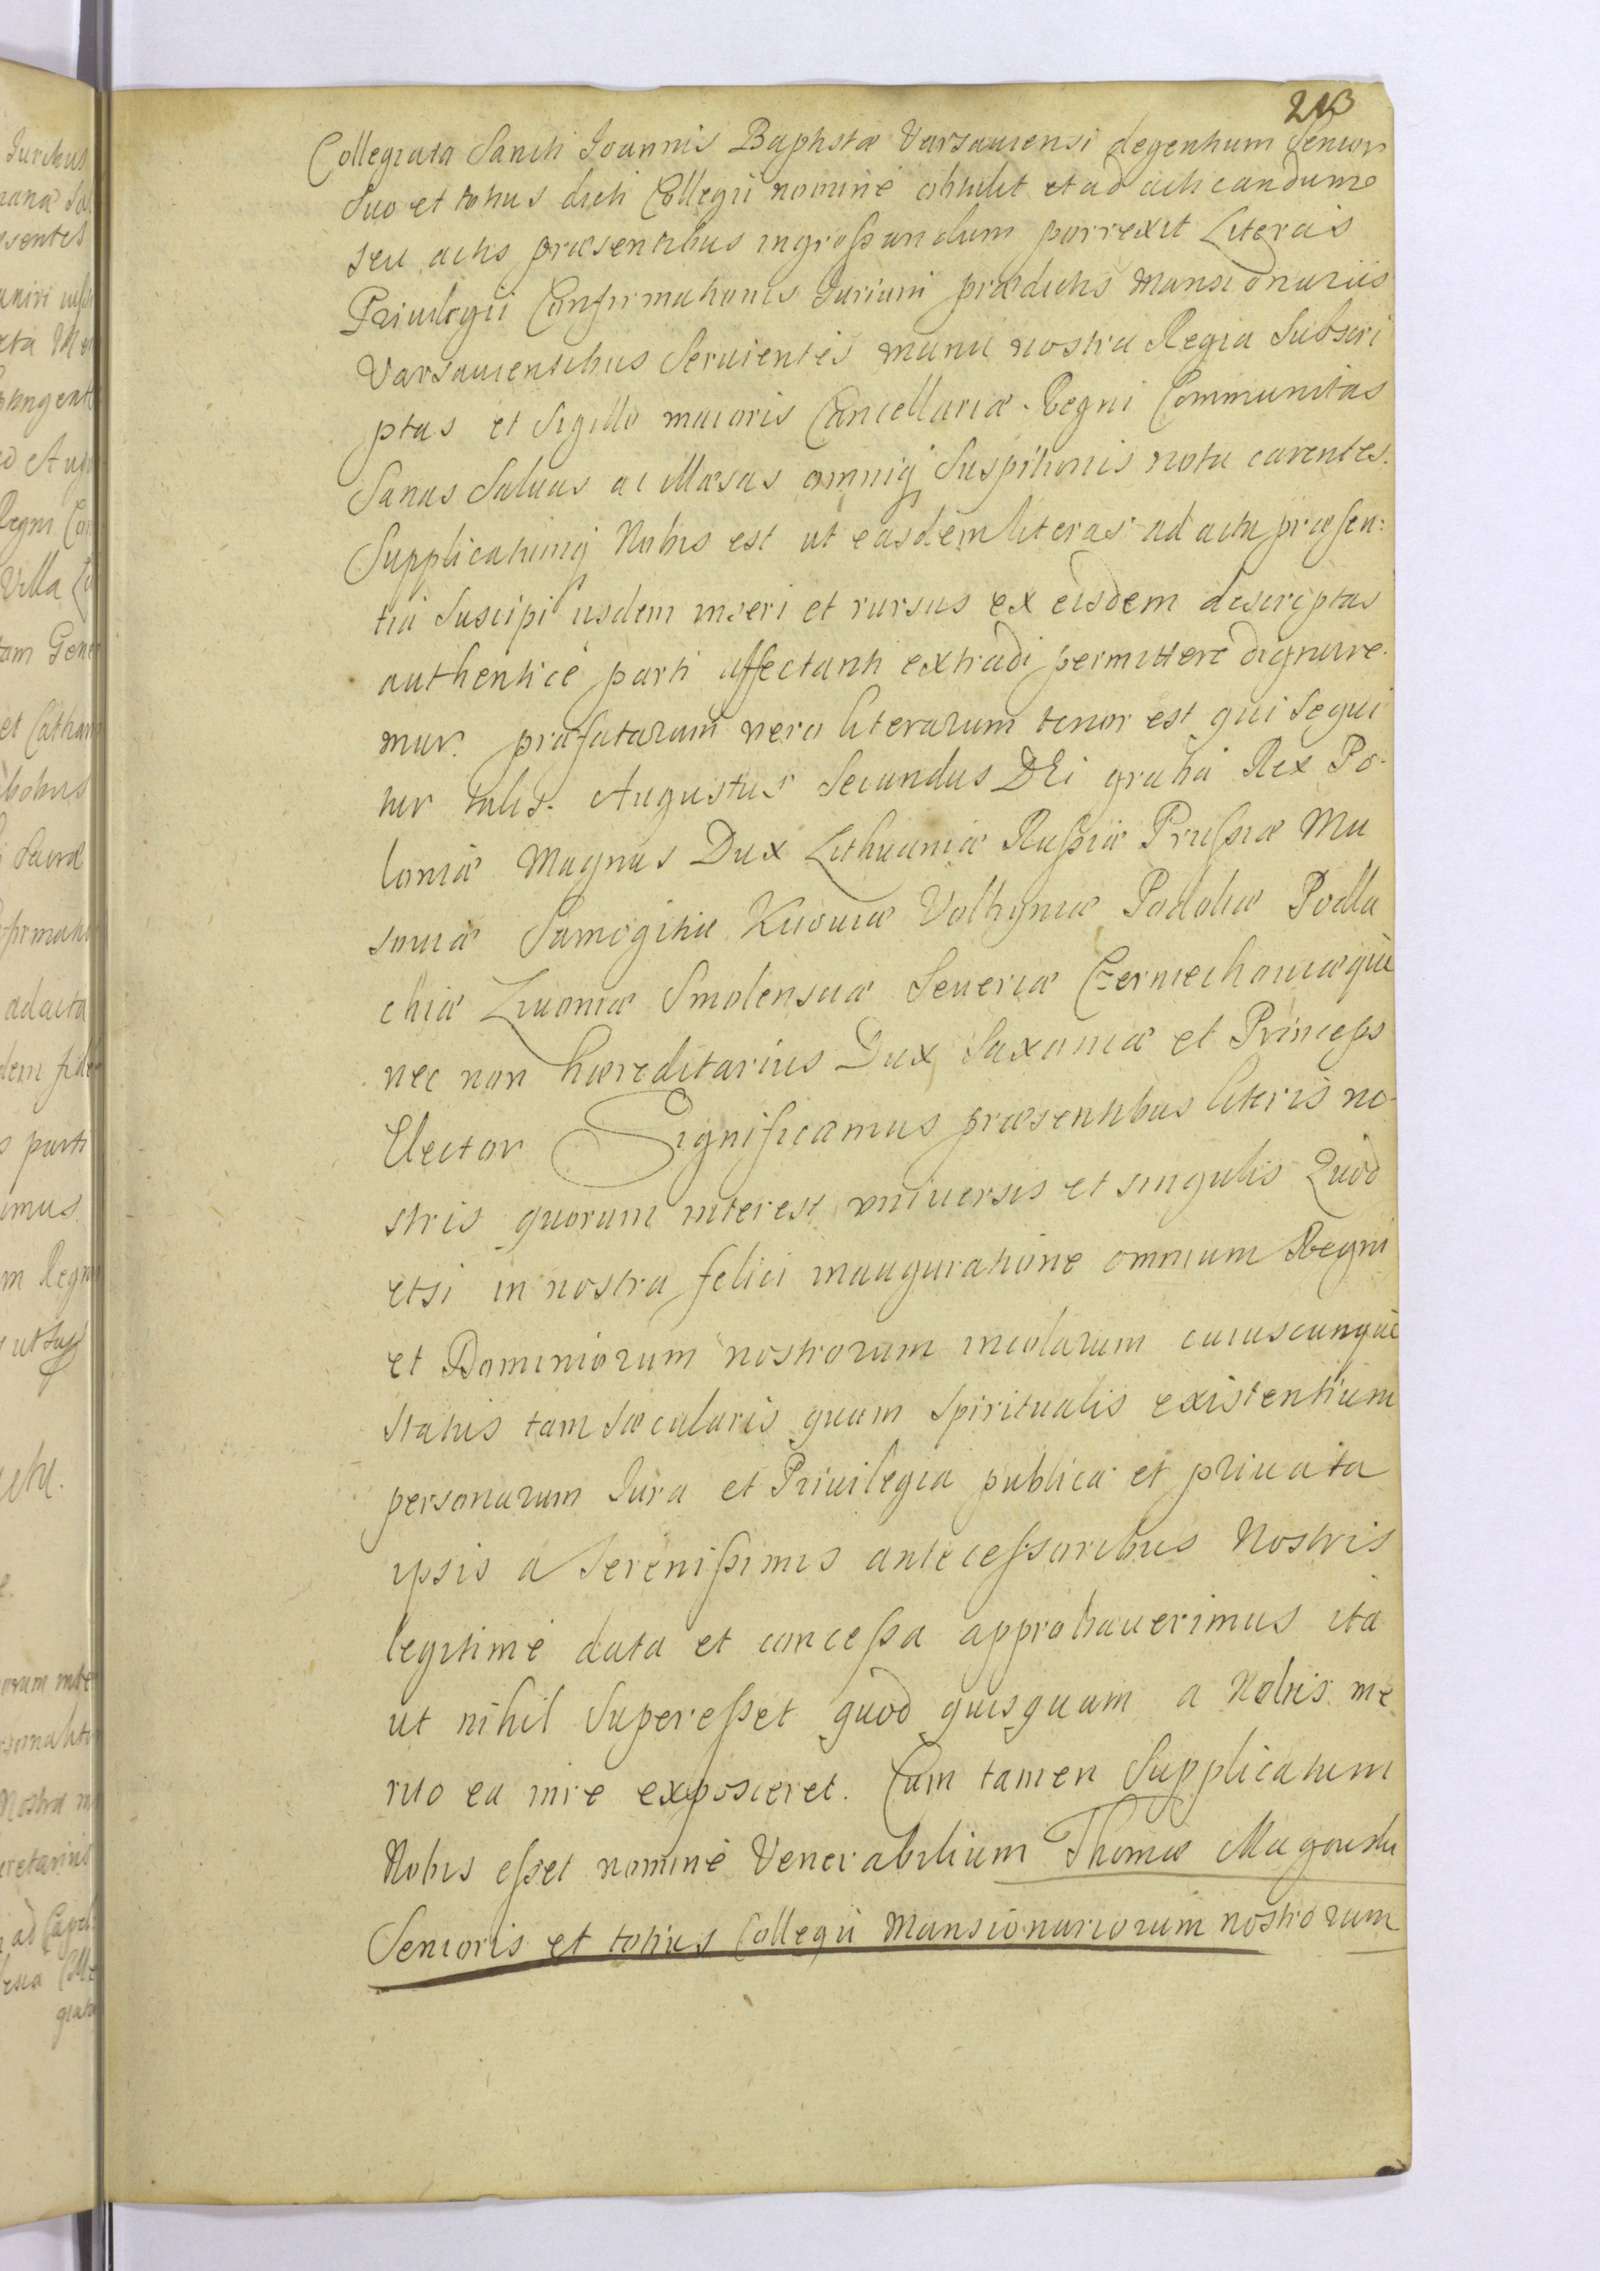 213
Collegiata Sancti Joannis Baptistæ Varsauiensi degentium Senior
Suo et totius dicti Collegii nominè obtulit et ad acticandum
seu actis præsentibus ingroßandum porrexit Literas
Priuilegii Confirmationis Iurium prædictis Mansionariis
Varsauiensibus Seruientes manu nostra Regia Subscri
ptas et Sigillo maioris Cancellariæ Regni Communitas
Sanas Saluas ac illæsas omniq Suspitionis nota carentes.
Supplicatumq Nobis est ut easdem literas ad acta præsen:
tia Suscipi iisdem inseri et rursus ex eisdem descriptas
authenticè parti affectanti extradi permittere dignare
mur. præfatarum vero literarum tenor est qui sequi
tur talis. Augustus Secundus DEi gratia Rex Po-
loniæ Magnus Dux Lithuaniæ Rußiæ Prußiæ Ma
souiæ Samogitiæ Kiiouiæ Volhyniæ Podoliæ Podla
chiæ Liuoniæ Smolensciæ Seueriæ Czerniechouiæquè
nec non hæreditarius Dux Saxoniæ et Princeps
Elector Significamus præsentibus literis no-
stris quorum interest vniuersis et singulis Quod
etsi in nostra felici inauguratione omnium Regni
et Dominiorum nostrorum incolarum cuiuscunquè
status tam sæcularis quam spiritualis existentium
personarum Iura et Priuilegia publica et priuata
ipsis a Sereniſsimis anteceſsoribus Nostris
legitimè data et conceßa approbauerimus ita
ut nihil Supereßet quod quisquam a Nobis me
rito ea in re exposceret. Cum tamen Supplicatum
Nobis eßet nominè Venerabilium Thomæ Magouski
Senioris et totius Collegii Mansionariorum nostrorum